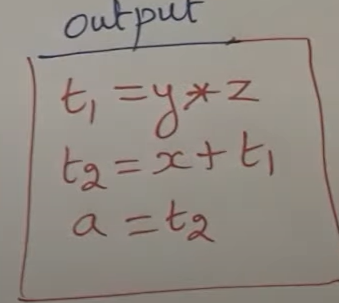 output
t₁ = y * z
t₂ = x + t₁
a = t₂